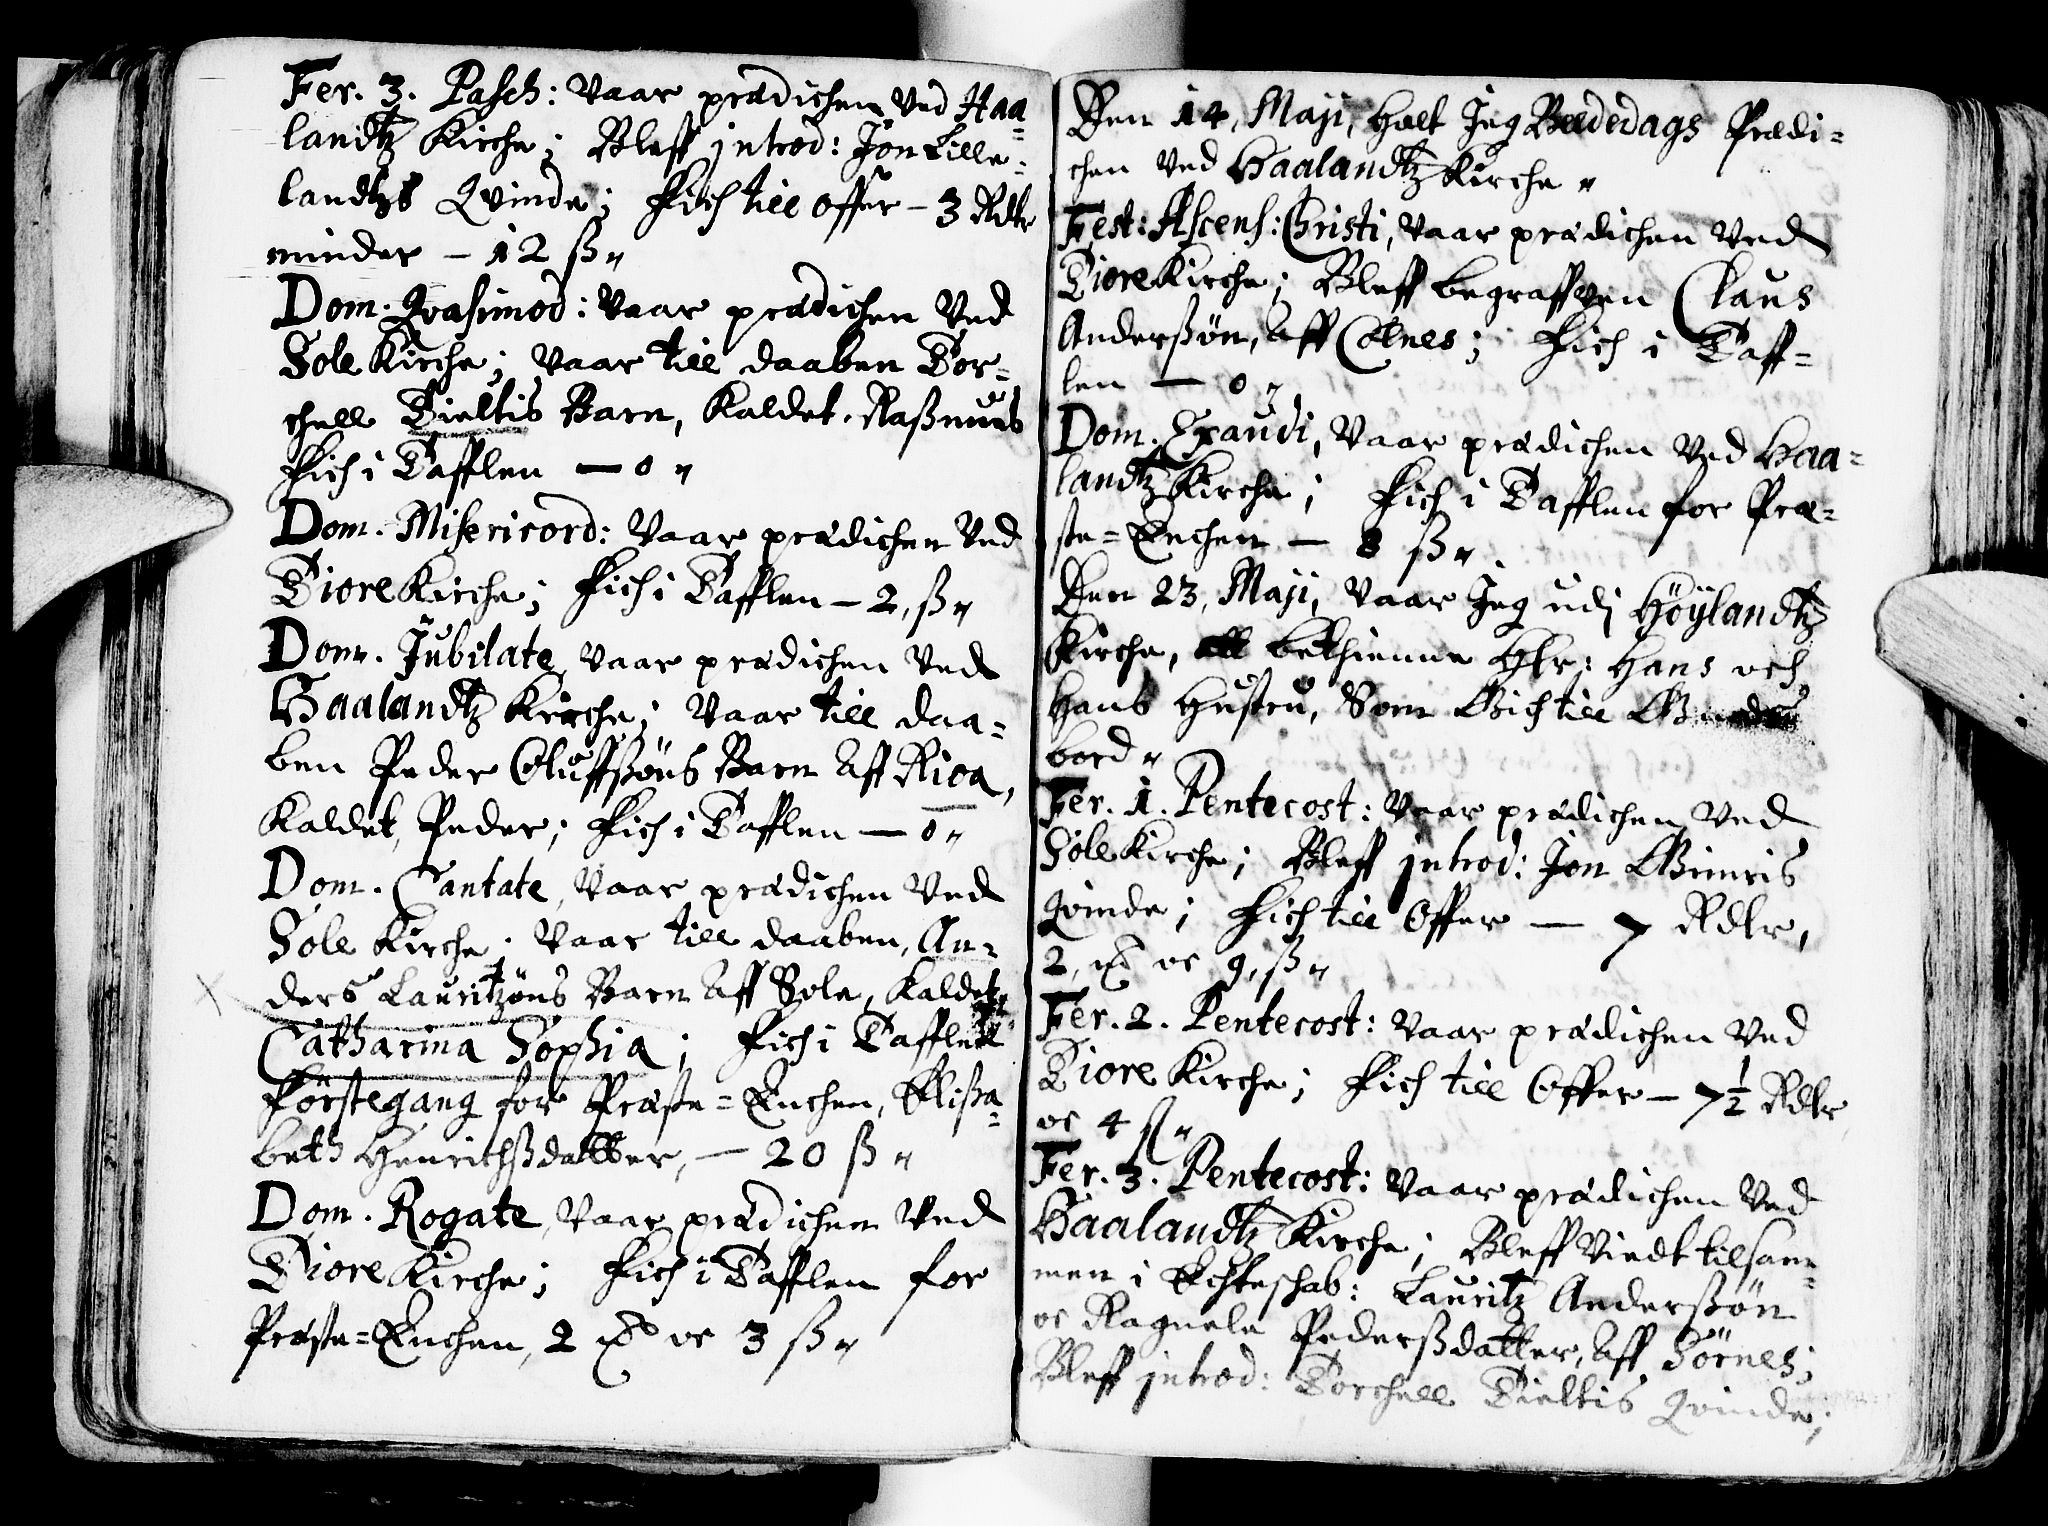 Fer. 3. Pasch: Vaar prædichen Ved Haa=
landtz Kirche; Bleff introd: Jon Lille=
landtzs Qvinde; Fich till offer – 3 Rdlr
minder – 12 ß„
Dom. Qvasimod: Vaar prædichen Ved
Sole Kirche; Vaar till daaben Tor=
chell Tieltis Barn, Kaldet. Raßmus
Fich i Tafflen — 0 „
Dom. Misericord: Vaar prædichen Ved
Tiore Kirche; Fich i Tafflen – 2, ß„
Dom. Jubilate, Vaar prædichen Ved
Haalandtz Kirche; Vaar till daa=
ben Peder Oluffsøns Barn Aff Rioa,
Kaldet, Peder; Fich i Tafflen — 0 „
Dom. Cantate, Vaar prædichen Ved
Sole Kirche; Vaar till daaben, An=
ders Lauritzøns Barn Aff Sole, Kaldet
Catharina Sophia; Fich i Tafflen
Förstegang for Præste=Enchen, Elißa=
beth Henrichßdatter, — 20 ß „
Dom. Rogate, Vaar prædichen Ved
Tiore Kirche; Fich i Tafflen for
Præste=Enchen, 2 oc 3 ß„
Den 14, Maji, Holt Jeg Bededags Prædi=
chen Ved Haalandtz Kirche „
Fest: Ascens: Christi, Vaar prædichen Ved
Tiore Kirche; Bleff begraffven Claus
Anderßøn, Aff Olnes; Fich i Taff=
len — 0 „
Dom. Exaudi, Vaar prædichen Ved Haa=
landtz Kirche; Fich i Tafflen for Præ=
ste=Enchen — 8 ß„
Den 23, Maji, Vaar Jeg udj Höÿlandtz
Kirche, bethienne Hr: Hans och
Hans Hustru, Som Gich till Guds
bord „
Fer. 1. Pentecost: Vaar prædichen Ved
Sole Kirche; Bleff introd: Jon Gimris
Qvinde; Fich till Offer — 7 Rdlr,
2, oc 9, ß„
Fer. 2. Pentecost: Vaar prædichen Ved
Tiore Kirche; Fich till Offer – 7½ Rdlr
oc 4 ß„
Fer. 3. Pentecost: Vaar prædichen Ved
Haalandtz Kirche; Bleff Viedt tilsam=
men i Echteschab: Lauritz Anderßøn
oc Ragnele Pederßdatter, Aff Sörnes;
Bleff introd: Torchell Tieltis Qvinde;